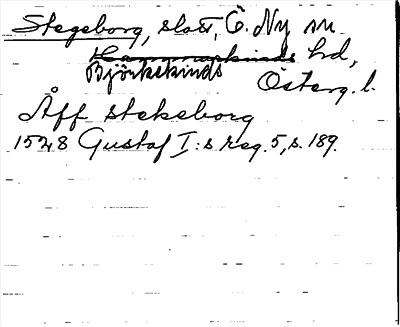 Stegeborg, slott, Ö. Ny sn
Hammarkinds hrd,
Björkekinds
Österg. l.
Åff stekeborg
1528 Gustaf I:s reg. 5, s. 189.